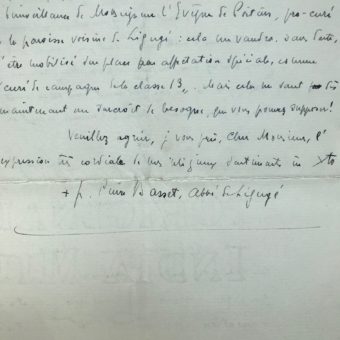 bienveillance de Monseigneur l'Evêque de Poitiers, pro-curé
de la paroisse voisine de Ligugé : cela me vaudra, sans doute,
d'être mobilisé sur place par affectation spéciale, comme
"curé de campagne de la classe 13". Mais cela me vaut
maintenant un surcroît de besogne, que vous pouvez supposer!
Veuillez agréer, je vous prie, Cher Monsieur, l'
expression très cordiale de mes religieux sentiments in Xto
+ f. Pierre Basset, Abbé de Ligugé